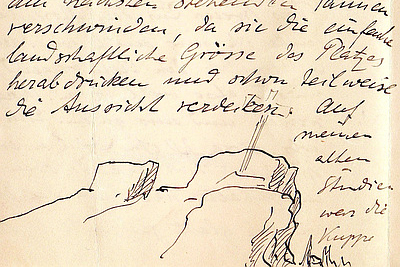 am nächsten stehenden Tannen
verschwinden, da sie die einfache
landschaftliche Grösse des Platzes
herabdrücken und schon teilweise
die Aussicht verdecken. Auf
meinen
alten
Studien
war die
Kuppe